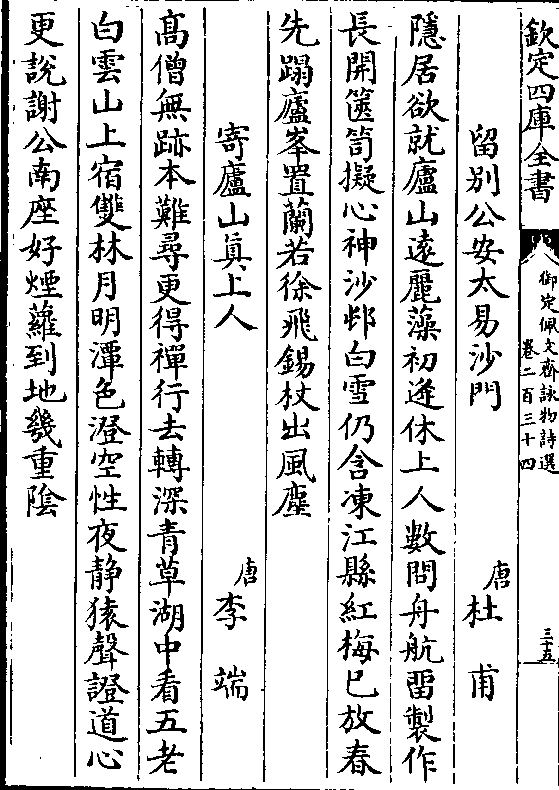 欽定四庫全書
御定佩文齋詠物詩選
卷二百三十四
三十五
留別公安太易沙門
唐 杜甫
隱居欲就廬山逺麗藻初逢休上人數問舟航留製作
長開篋笥擬心神沙邨白雪仍含凍江縣紅梅已放春
先蹋廬峯置蘭若徐飛錫杖出風塵
寄廬山真上人
唐 李端
髙僧無跡本難尋更得禪行去轉深青草湖中看五老
白雲山上宿雙林月明潭色澄空性夜静猿聲證道心
更說謝公南座好煙蘿到地幾重陰